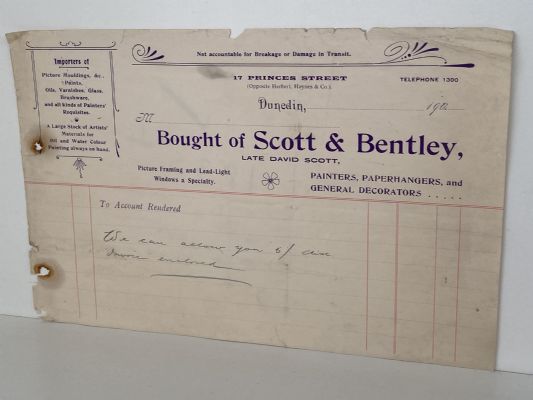 Importers of
Picture Mouldings, &c.,
Paints,
Oils, Varnishes, Glass,
Brushware,
and all kinds of Painters'
Requisites.
A Large Stock of Artists'
Materials for
Oil and Water Colour
Painting always on hand.
Not accountable for Breakage or Damage in Transit.
17 PRINCES STREET
(Opposite Herbert, Haynes & Co.)
TELEPHONE 1300
Dunedin, 190
M
Bought of Scott & Bentley,
LATE DAVID SCOTT,
Picture Framing and Lead-Light
Windows a Specialty.
PAINTERS, PAPERHANGERS, and
GENERAL DECORATORS . . . . .
To Account Rendered
We can allow you 6/
enclosed